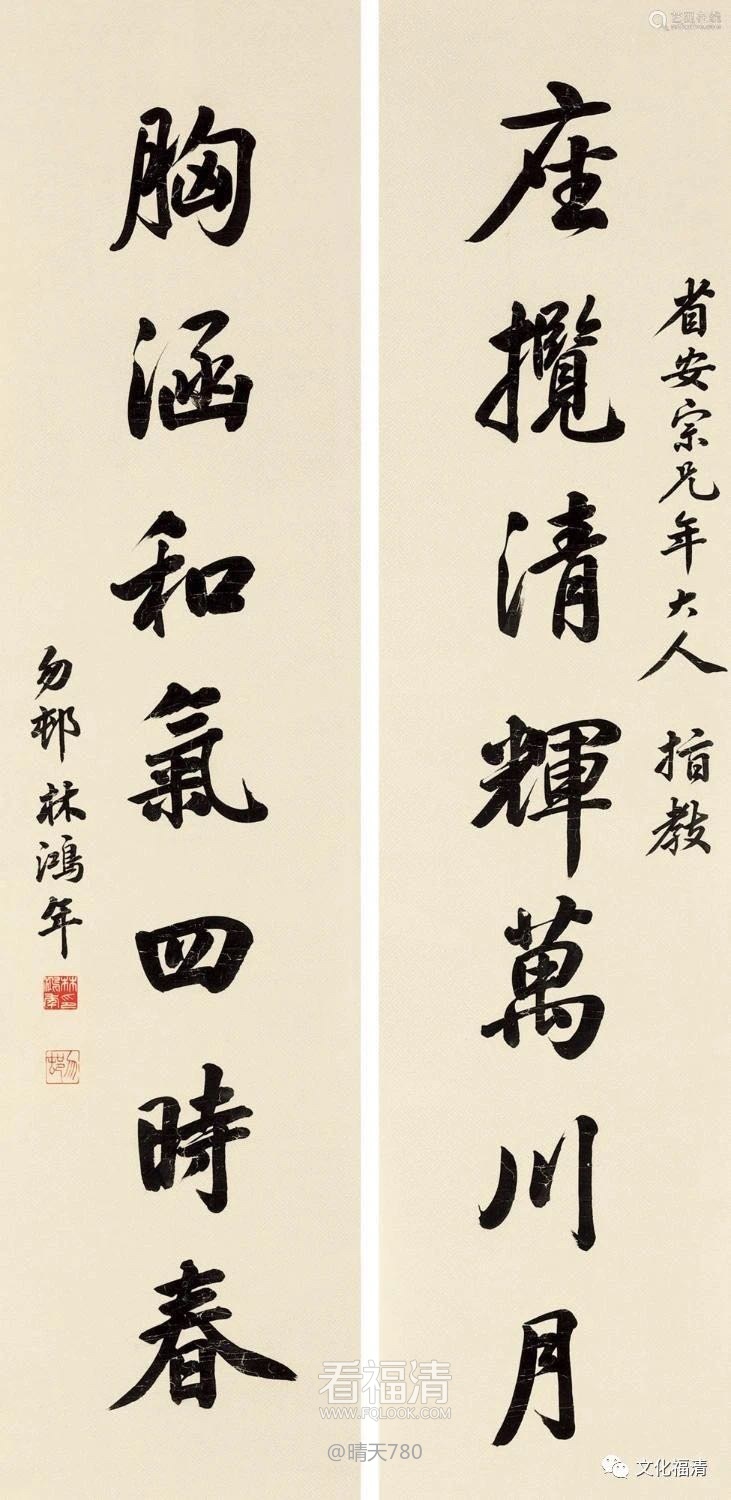 省安宗兄年大人 指教
座攬清輝萬川月
胸涵和氣四時春
勿邨林鴻年
林鴻年印
勿邨
看福清
WWW.FQLOOK.COM
@晴天780
文化福清